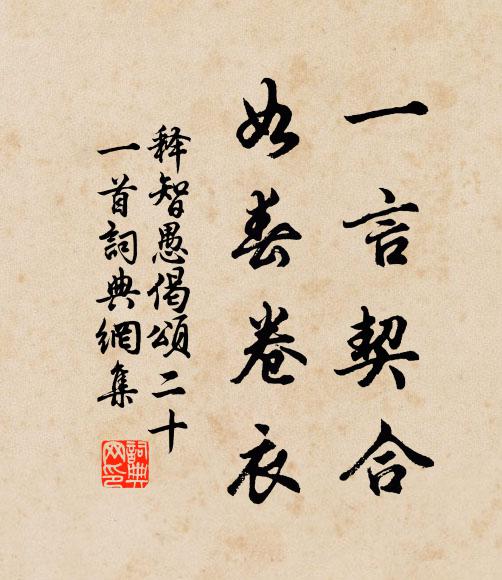 一言契合
如春卷衣
释智愚偈頌二十
一首詞典網集
詞典
网印